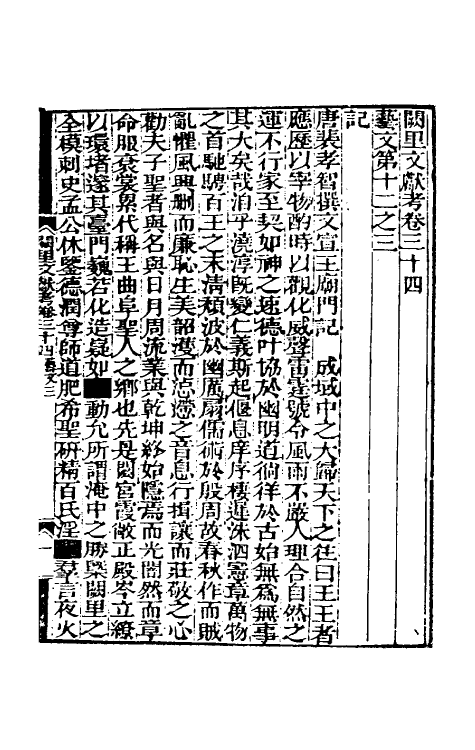 闕里文獻考卷三十四
藝文第十二之三
記
唐裴孝智撰文宣王廟門記　成域中之大歸天下之往曰王王者
應歷以宰物酌時以觀化威聲雷霆號令風雨不嚴人理合自然之
運不行家至契如神之速德叶協於幽明道徜徉於古始無爲無事
其大矣哉洎乎澆淳旣變仁義斯起偃息庠序棲遲洙泗憲章萬物
之首馳騁百王之末淸頽波於幽厲扇儒術於殷周故春秋作而賊
亂懼風興刪而廉恥生美韶濩而忘之音息行揖讓而莊敬之心
勸夫子聖者與名與日月周流業與乾坤終始隱焉而光闇然而章
命服衮裳累代稱王曲阜聖人之鄕也先是閟宮霞敞正殿岑立繚
以環堵邃其臺門巍若化造嶷如動允所謂淹中之勝槩闕里之
全模刺史孟公休鑒德潤尊師道肥希聖硏精百氏淫羣言夜火
闕里文獻考卷三十四藝文三
一